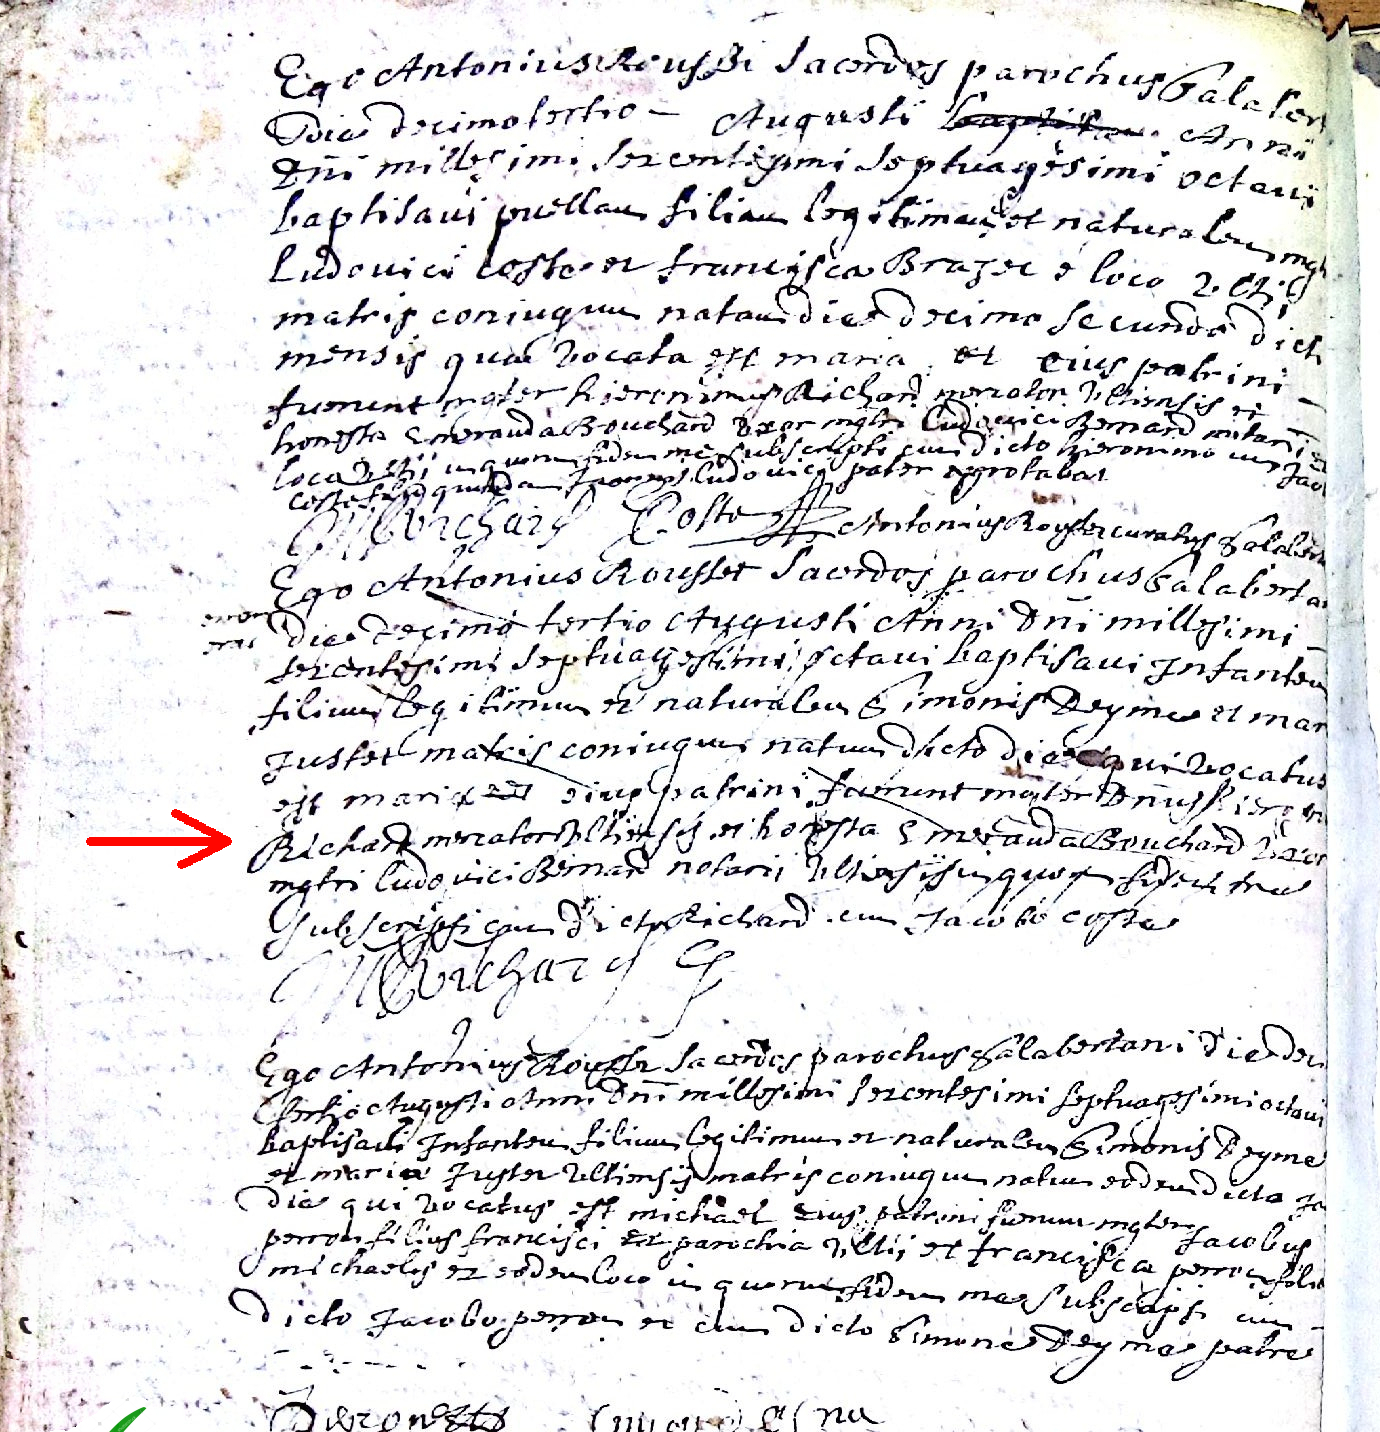 Ego Antonius Rousset Sacerdos parochus Salaber
Die decimotertio — Augusti baptisavi Anni
Dñi millesimi sexcentesimi septuagesimi octavi
baptisavi puellam filiam legitimam et naturalem mgri
Ludovici Coste et francisca Brazec e loco Vltij
matris coniugum natam die decimo secundo dicti
mensis qua vocata est maria et eius patrini
fuerunt mgter hieronimus Richard mercator Vltiensis et
honesta Emeranda Bouchard Vxor mgtri Ludovici Bernard notarii
loca Vltij in quorum fidem me subscripsi cum dicto hieronimo cum Jac
Coste Ludovicus pater egrotabat
Richard Coste Antonius Rousset curatus Salabert
Ego Antonius Rousset Sacerdos parochus Salabertan
error
Die decimo tertio Augusti Anni Dñi millesimi
sexcentesimi septuagesimi octavi baptisavi Infantem
filium legitimum et naturalem Simonis Deyme et mar
Justet matris coniugum natum dicto die qui vocatus
est maria et eius patrini fuerunt mgter Dñus hieron
Richard mercator Vltiensis et honesta Emeranda Bouchard Vxor
mgtri Ludovici Bernard notarij Vltiensis in quorum fidem me
subscripsi cum dicto Richard cum Jacobo Coste
Richard
Ego Antonius Rousset Sacerdos parochus Salabertani Die deci
tertio Augusti Anni Dñi millesimi sexcentesimi septuagesimi octavi
baptisavi Infantem filium legitimum et naturalem Simonis Deyme
et maria Justet Vltiensis matris coniugum natum eodem dicta
Die qui vocatus est michael eius patrini fuerunt mgter Jacobus
perron filius francisci ex parochia Vltij et francisca perron filia
michaelis ex eodem loco in quorum fidem me subscripsi cum
dicto Jacobo perron et cum dicto Simone Deyme patre